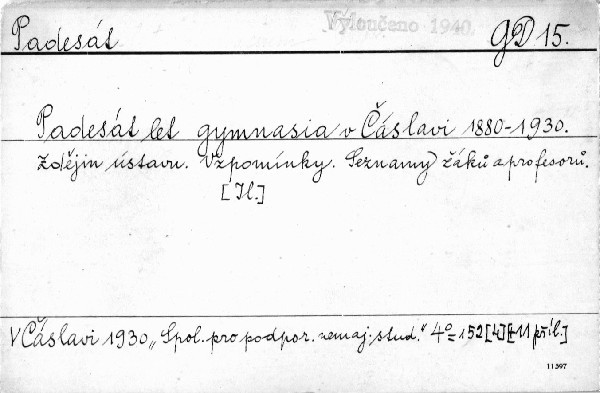 Padesát
Vyloučeno 1940
GD 15.
Padesát let gymnasia v Čáslavi 1880-1930.
Z dějin ústavu. Vzpomínky. Seznamy žáků a profesorů.
[Il.]
V Čáslavi 1930 „Spol. pro podpor. nemaj. stud." 4° 152 [4] [+ 11 příl.]
11397